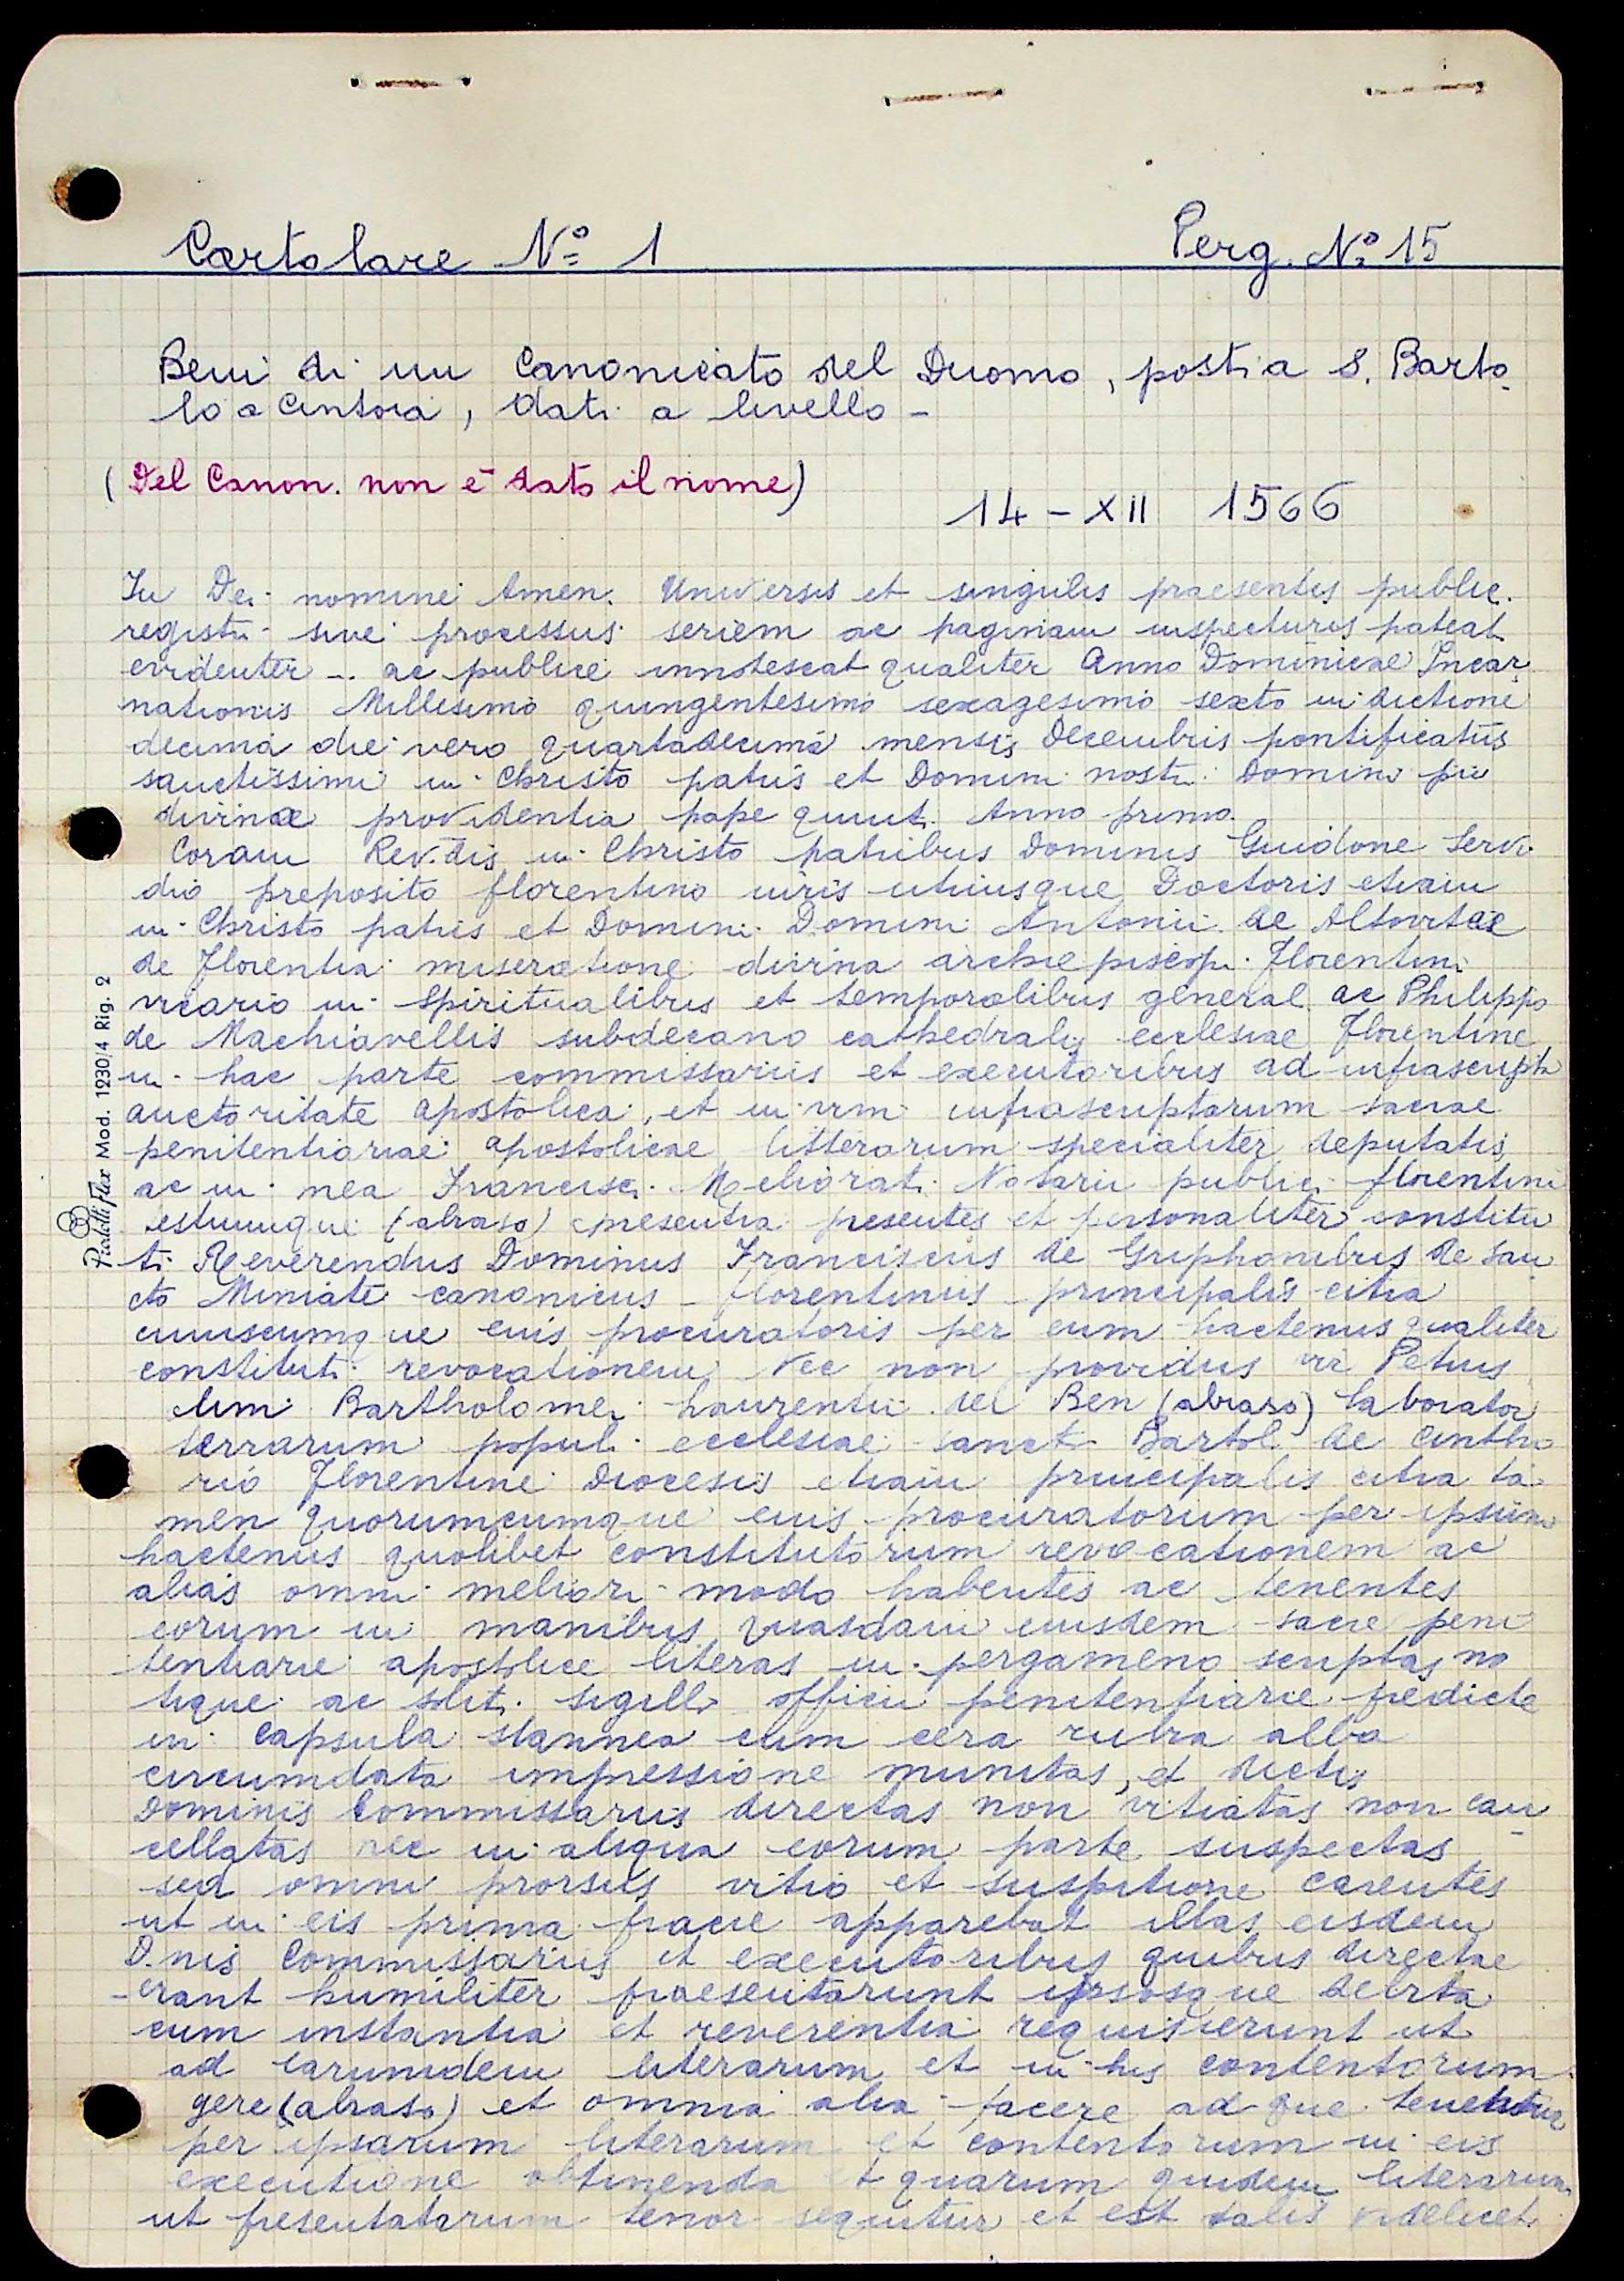 Cartolare No 1 Perg. No 15
Beni di un Canonicato del Duomo, posti a S. Barto-
lo a Cintoia, dati a livello -
(Del Canon. non è dato il nome)
14 - XII 1566
In Dei nomine Amen. Universis et singulis praesentis public.
registri sive processus seriem ac paginam inspecturis pateat
evidenter -. ac publice innotescat qualiter Anno Dominicae Incar-
nationis Millesimo quingentesimo sexagesimo sexto indictione
decima die vero quartadecima mensis Decembris pontificatus
sanctissimi in Christo patris et Domini nostri Domini pii
divina providentia pape quinti Anno primo.
Coram Rev.dis in Christo patribus Dominis Guidone Servi
dio preposito florentino iuris utriusque Doctoris etiam
in Christo patris et Domini Domini Antonii de Altovitae
de Florentia miseratione divina archiepiscopi Florentini
vicario in spiritualibus et temporalibus general. ac Philippo
de Machiavellis subdecano cathedralis ecclesiae Florentine
in hac parte commissariis et executoribus ad infrascripta
auctoritate apostolica, et in vim infrascriptarum sacrae
penitentiariae apostolicae litterarum specialiter deputatis
ac in mea Francisci Meliorati Notarii publici florentini
(abraso) presentia presentes et personaliter constitu
ti Reverendus Dominus Franciscus de Griphonibus de San
cto Miniate canonicus florentinus principalis citra
cuiuscumque eius procuratoris per eum hactenus qualiter
constituti revocationem Nec non providus vir Petrus
olim Bartholomei Laurentii del Ben (abraso) laborator
terrarum populi ecclesiae sancti Bartol. de Cintho
rio Florentine diocesis etiam principalis citra ta-
men quorumcumque eius procuratorum per ipsum
hactenus quolibet constitutorum revocationem ac
alias omni meliori modo habentes ac tenentes
eorum in manibus quasdam eiusdem sacre peni
tentiarie apostolice literas in pergameno scriptas no
tique ac soliti sigilli officii penitentiarie predicte
in capsula stannea cum cera rubra alba
circumdata impressione munitas, et dictis
Dominis Commissariis directas non vitiatas non can
cellatas nec in aliqua eorum parte suspectas
sed omni prorsus vitio et suspitione carentes
ut in eis prima facie apparebat illas eisdem
D.nis Commissariis et executoribus quibus directae
-erant humiliter praesentarunt ipsosque debita
cum instantia et reverentia requisierunt ut
ad earumdem literarum et in his contentorum
gere (abraso) et omnia alia facere ad que tenentur
per ipsarum literarum et contentorum in eis
executione obtinenda et quarum quidem literarum
ut presentatarum tenor sequitur et est talis videlicet.
Mod. 1230/4 Rig. 2